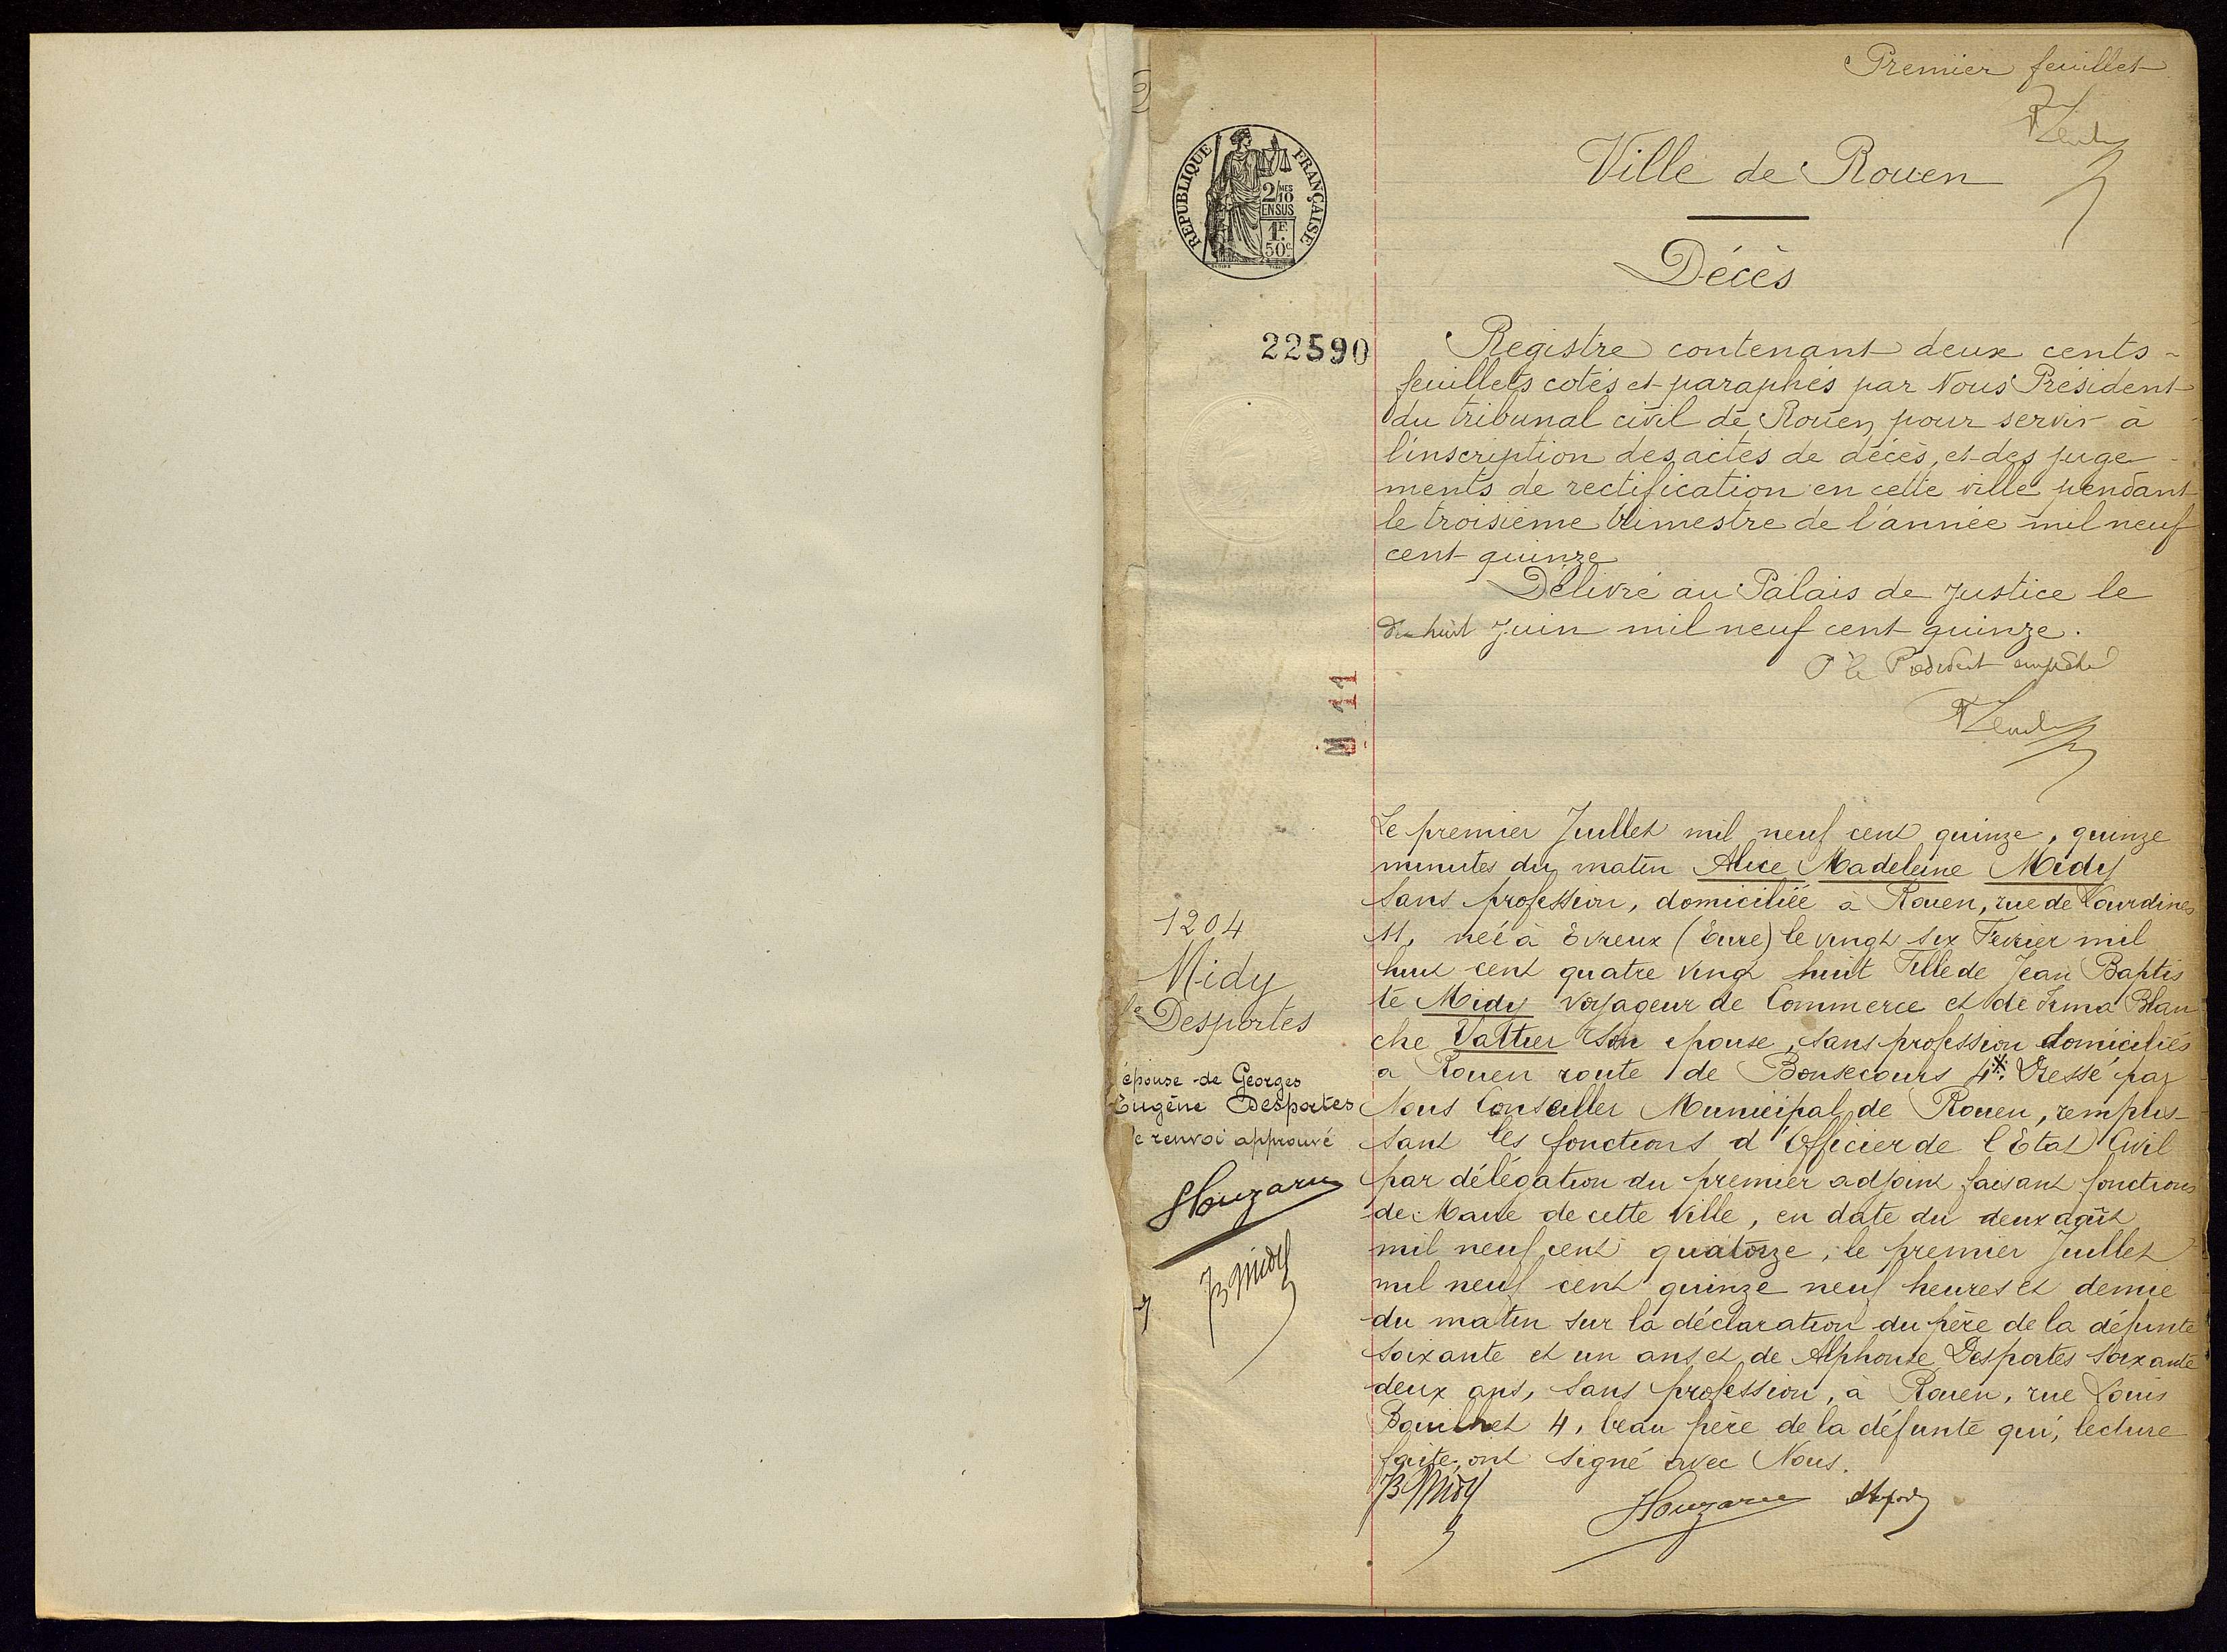 Premier feuillet
Ville de Rouen
Décès
REPUBLIQUE FRANÇAISE
2/10 MES
EN SUS
1F.
50c.
22590
Registre contenant deux cents
feuillets cotés et paraphés par Nous Président
du tribunal civil de Rouen, pour servir à
l'inscription des actes de décès, et des juge-
ments de rectification en cette ville pendant
le troisième trimestre de l'année mil neuf
cent quinze
Délivré au Palais de Justice le
dix huit Juin mil neuf cent quinze.
P le Président empêché
M 11
1204
Midy
fe Desportes
épouse de Georges
Eugène Desportes
Le renvoi approuvé
Houzard
JB Midy
Le premier Juillet mil neuf cent quinze, quinze
minutes du matin Alice Madeleine Midy
sans profession, domiciliée à Rouen, rue de Lourdines
11, née à Evreux (Eure) le vingt six Fevrier mil
huit cent quatre vingt huit Fille de Jean Baptis
te Midy voyageur de Commerce et de Irma Blan
che Vattier son épouse, sans profession domiciliés
à Rouen route de Bonsecours 4*. Dressé par
Nous Conseiller Municipal de Rouen, remplis-
sant les fonctions d'Officier de l'Etat Civil
par délégation du premier adjoint faisant fonctions
de Maire de cette Ville, en date du deux août
mil neuf cent quatorze, le premier Juillet
mil neuf cent quinze neuf heures et demie
du matin sur la déclaration du père de la défunte
soixante et un ans et de Alphonse Desportes soixante
deux ans, sans profession, à Rouen, rue Louis
Bouilhet 4, beau père de la défunte qui, lecture
faite, ont signé avec Nous.
JB Midy Houzard